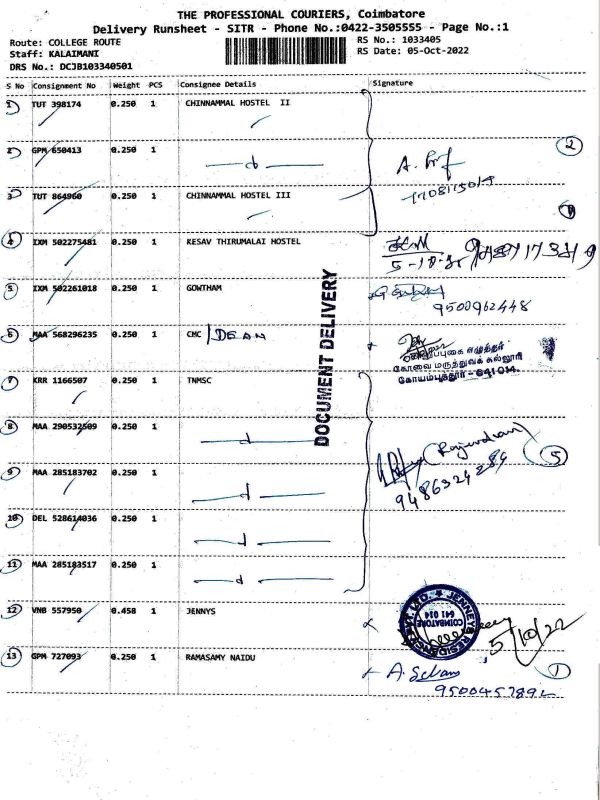 THE PROFESSIONAL COURIERS, Coimbatore
Delivery Runsheet - SITR - Phone No.:0422-3505555 - Page No.:1
Route: COLLEGE ROUTE
Staff: KALAIMANI
DRS No.: DCJB103340501
RS No.: 1033405
RS Date: 05-Oct-2022
S No Consignment No Weight PCS Consignee Details Signature
1 TUT 398174 0.250 1 CHINNAMMAL HOSTEL II
2 GPM 650413 0.250 1 — d —
2
3 TUT 864960 0.250 1 CHINNAMMAL HOSTEL III
4 IXM 502275481 0.250 1 KESAV THIRUMALAI HOSTEL
5 IXM 502261018 0.250 1 GOWTHAM
9500962448
6 MAA 568296235 0.250 1 CMC / DEAN
கோவை மருத்துவக் கல்லூரி
கோயம்புத்தூர் - 641 014.
DOCUMENT DELIVERY
7 KRR 1166507 0.250 1 TNMSC
8 MAA 290532509 0.250 1 — d —
5
9486324284
9 MAA 285183702 0.250 1 — d —
10 DEL 528614036 0.250 1 — d —
11 MAA 285183517 0.250 1 — d —
12 VNB 557950 0.458 1 JENNYS
COIMBATORE
641 014
5/10/22
13 GPM 727093 0.250 1 RAMASAMY NAIDU
A. Selvam
1